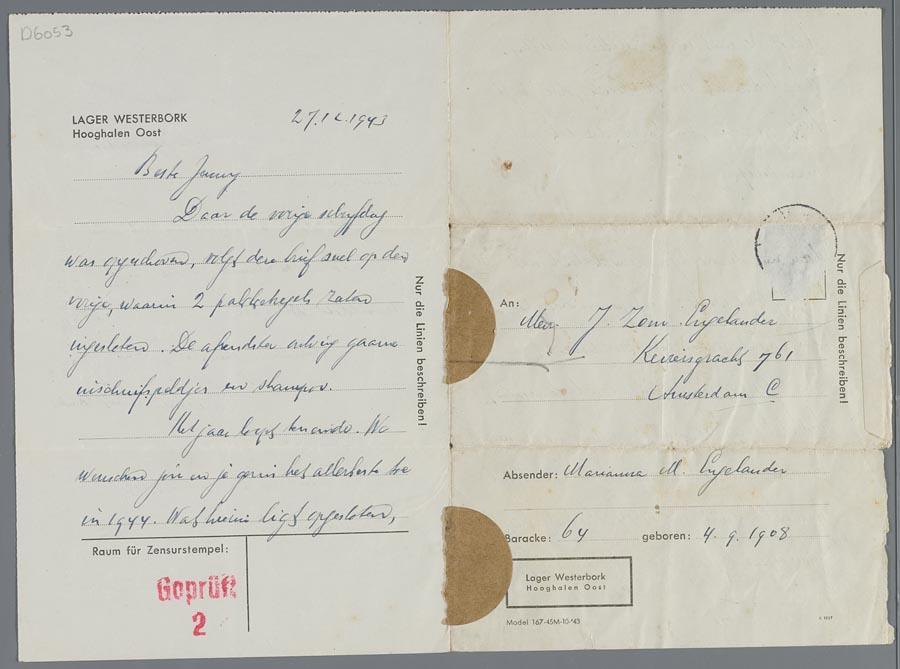 D6053
LAGER WESTERBORK
Hooghalen Oost
27.12.1943
Beste Jenny
Daar de vorige schrijfdag
was opgeschoven, volgt deze brief snel op den
vorige, waarin 2 pakketzegels zaten
ingesloten. De afzendster ontving gaarne
en shampoo.
Het jaar loopt ten einde. We
wenschen jou en je gezin het allerbeste toe
in 1944. Wat hierin ligt opgesloten,
Nur die Linien beschreiben!
Raum für Zensurstempel:
Geprüft
2
An:
J. Zom Engelander
Keizersgracht 761
Amsterdam C
Nur die Linien beschreiben!
Absender: Marianna M. Engelander
Baracke: 64 geboren: 4.9.1908
Lager Westerbork
Hooghalen Oost
Model 167-45M-10-'43